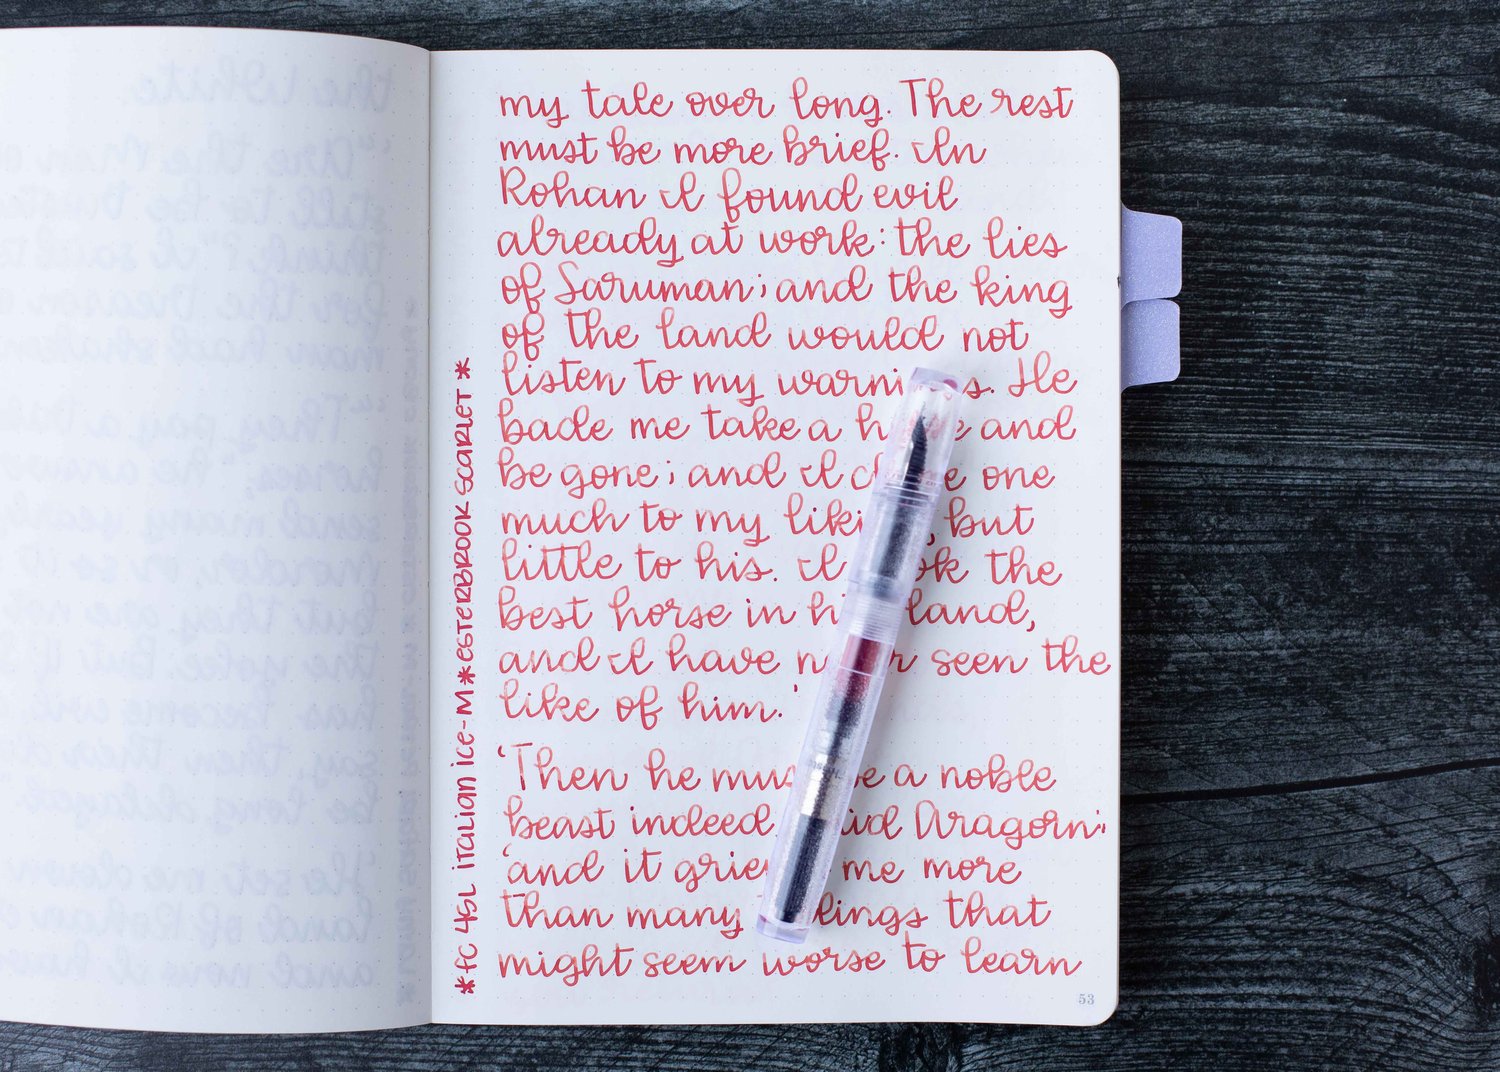 my tale over long. The rest
must be more brief. In
Rohan I found evil
already at work: the lies
of Saruman; and the king
of the land would not
listen to my He
bade me take a and
be gone; and I one
much to my but
little to his. I the
best horse in land,
and I have seen the
like of him.'
'Then he a noble
beast indeed, Aragorn;
'and it me more
than many that
might seem worse to learn
*FC 45L italian ice-M*ESTERBROOK SCARLET*
53